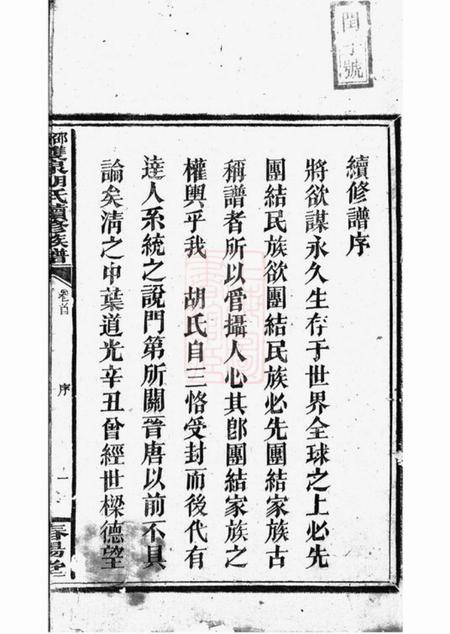 閏丁號
續修譜序
將欲謀永久生存于世界全球之上必先
團結民族欲團結民族必先團結家族古
稱譜者所以管攝人心其卽團結家族之
權輿乎我 胡氏自三恪受封而後代有
達人系統之說門第所關晉唐以前不具
論矣清之中葉道光辛丑曾經世樑德望
邵雙泉胡氏續修族譜
卷首
序
一
春暘堂